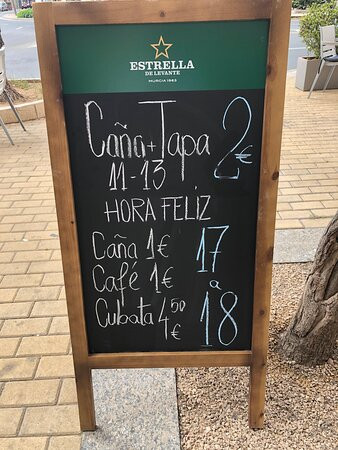 ESTRELLA
DE LEVANTE
MURCIA 1963
Caña + Tapa 2€
11-13
HORA FELIZ
Caña 1€ 17
Café 1€ a
Cubata 4,50€ 18